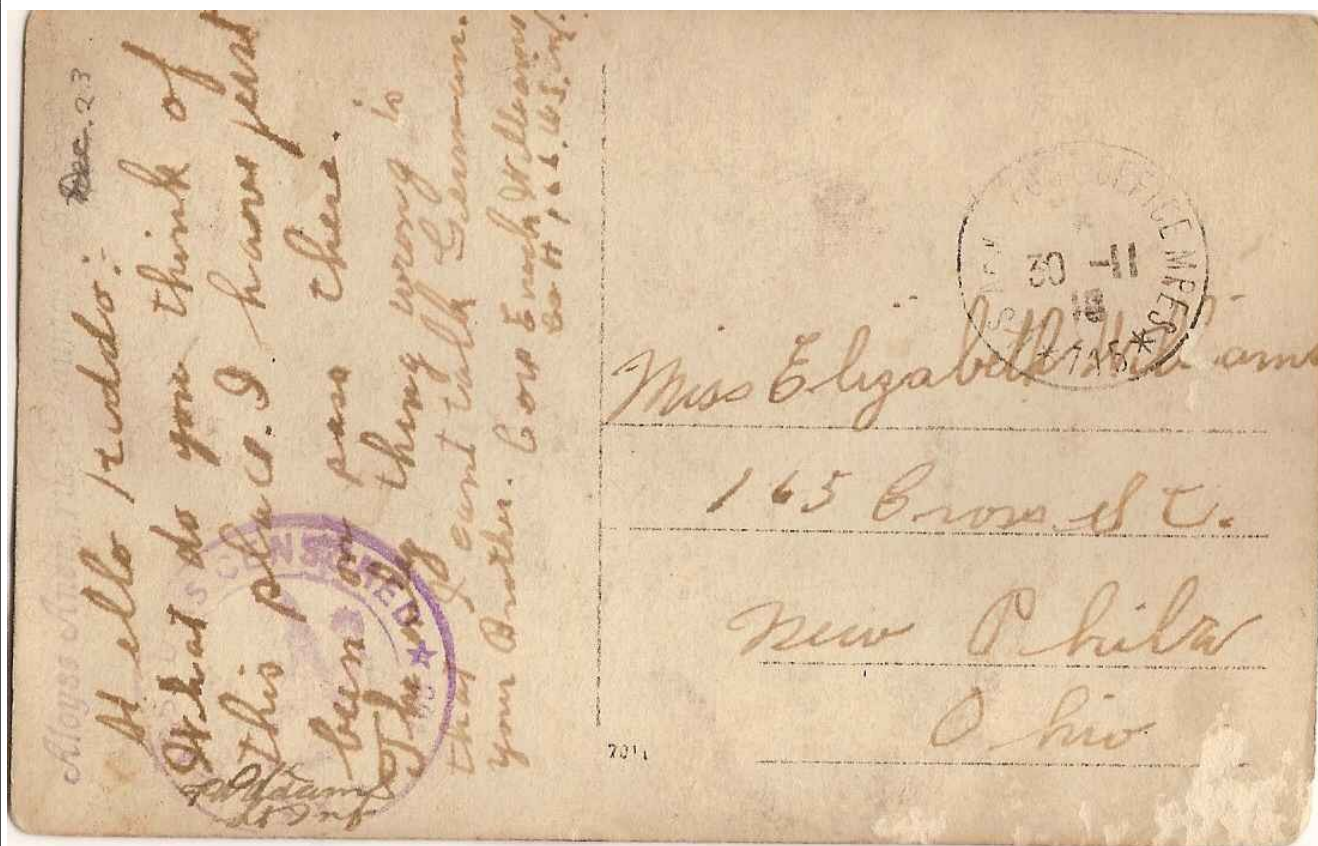 Dec. 23
Hello kiddo:
What do you think of
this place. I have just
been on pass there.
The only thing wrong is
that I cant talk German.
your Brother. Corp Enoch Williams
Co H, 166, U.S. Inf.
CENSORED
Lt Inf
OFFICE
30 11
18
Miss Elizabeth Williams
165 Cross St.
New Phila
Ohio
7011